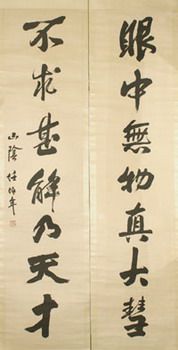 眼中無物真大彗
不求甚解乃天才
山陰任伯年